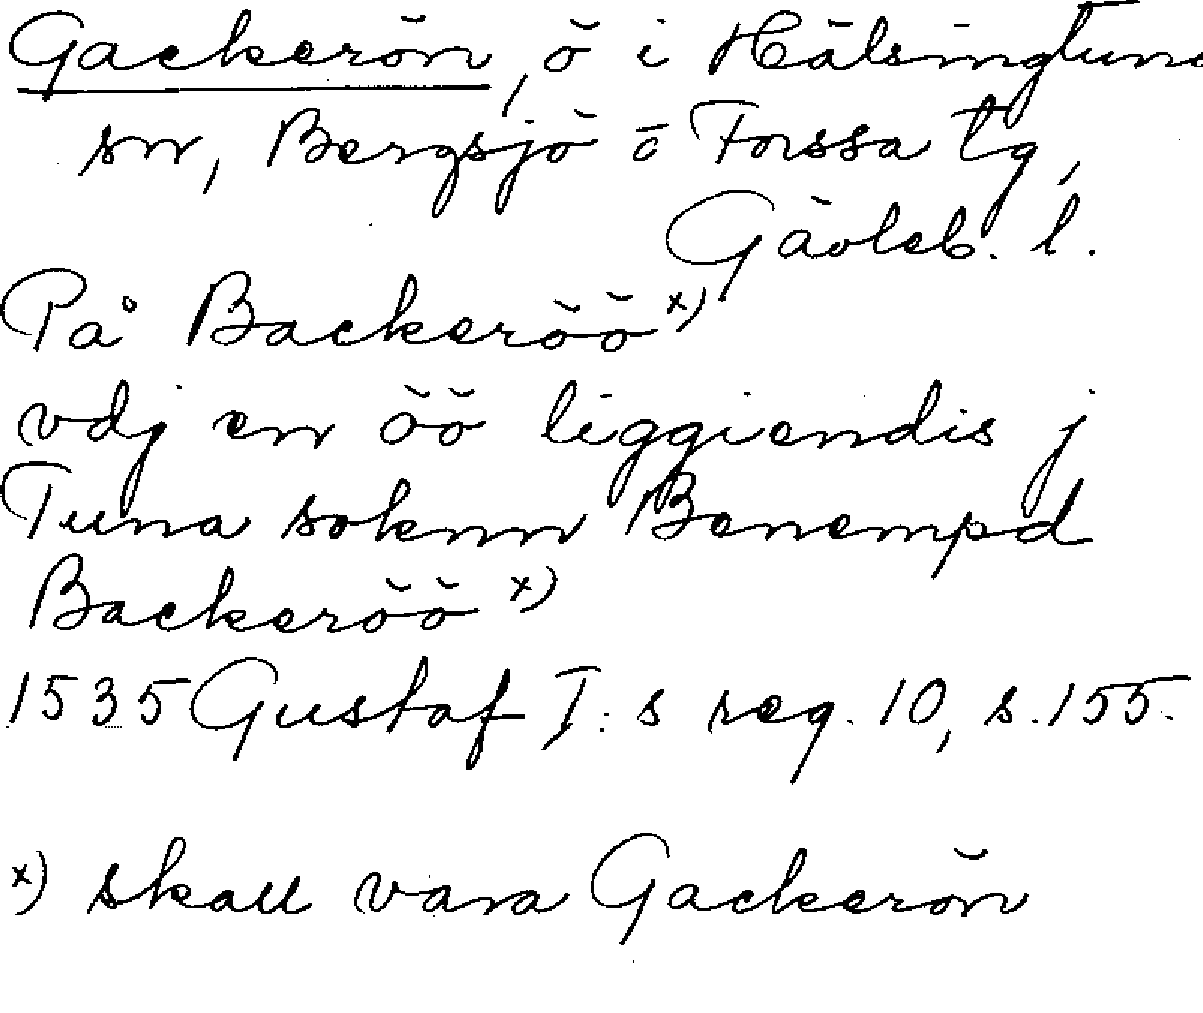 Gackerön, ö i Hälsingtuna
sn, Bergsjö o Forssa tg,
Gävleb. l.
På Backeröö x)
vdj en öö liggiendis j
Tuna soknn Benempd
Backeröö x)
1535 Gustaf I:s reg. 10, s. 155.
x) skall vara Gackerön